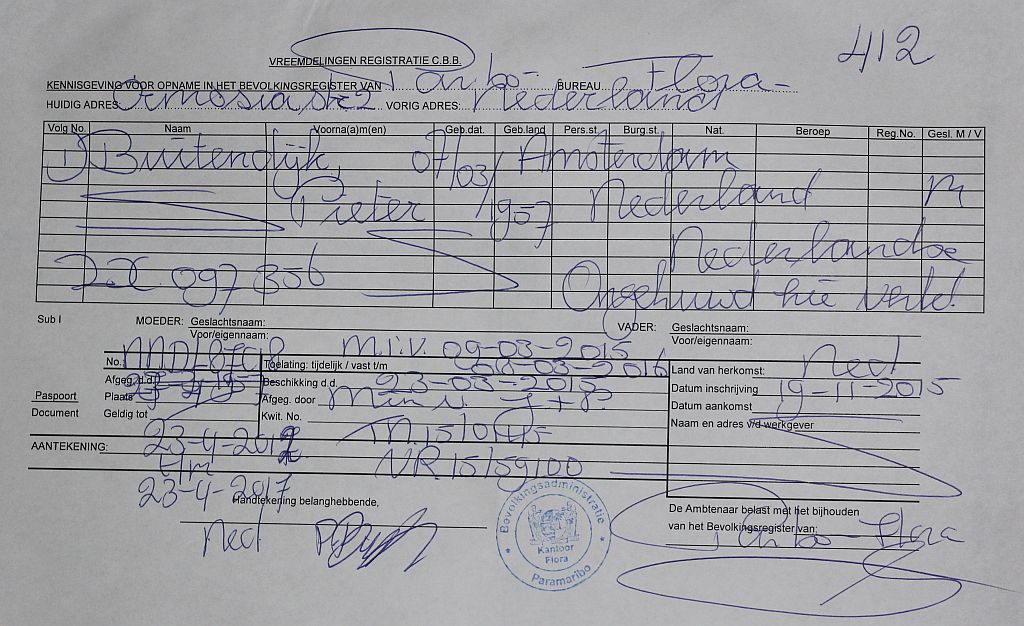 412
VREEMDELINGEN REGISTRATIE C.B.B.
KENNISGEVING VOOR OPNAME IN HET BEVOLKINGSREGISTER VAN P'aribo BUREAU Flora
HUIDIG ADRES: Ormosiastr 2 VORIG ADRES: Nederland
Volg No. Naam Voorna(a)m(en) Geb.dat. Geb.land Pers.st. Burg.st. Nat. Beroep Reg.No. Gesl. M / V
1) Buitendijk, 07/03/ Amsterdam
Pieter 1957 Nederland M
Nederlandse
097 356 Ongehuwd hie verkl.
Sub I MOEDER: Geslachtsnaam: VADER: Geslachtsnaam:
Voor/eigennaam: Voor/eigennaam:
m.i.v. 09-03-2015
No.: Toelating: tijdelijk / vast t/m 08-03-2016 Land van herkomst: Ned
Afgeg. d.d. Beschikking d.d. 23-03-2015 Datum inschrijving 19-11-2015
Paspoort Plaats Afgeg. door Min v. J+P Datum aankomst
Document Geldig tot Kwit. No. Naam en adres v/d werkgever
AANTEKENING: 23-4-2012
t/m NR. 15/59100
23-4-2017
Handtekening belanghebbende,
Ned
De Ambtenaar belast met het bijhouden
van het Bevolkingsregister van: P'aribo - Flora
Bevolkingsadministratie
Kantoor
Flora
Paramaribo